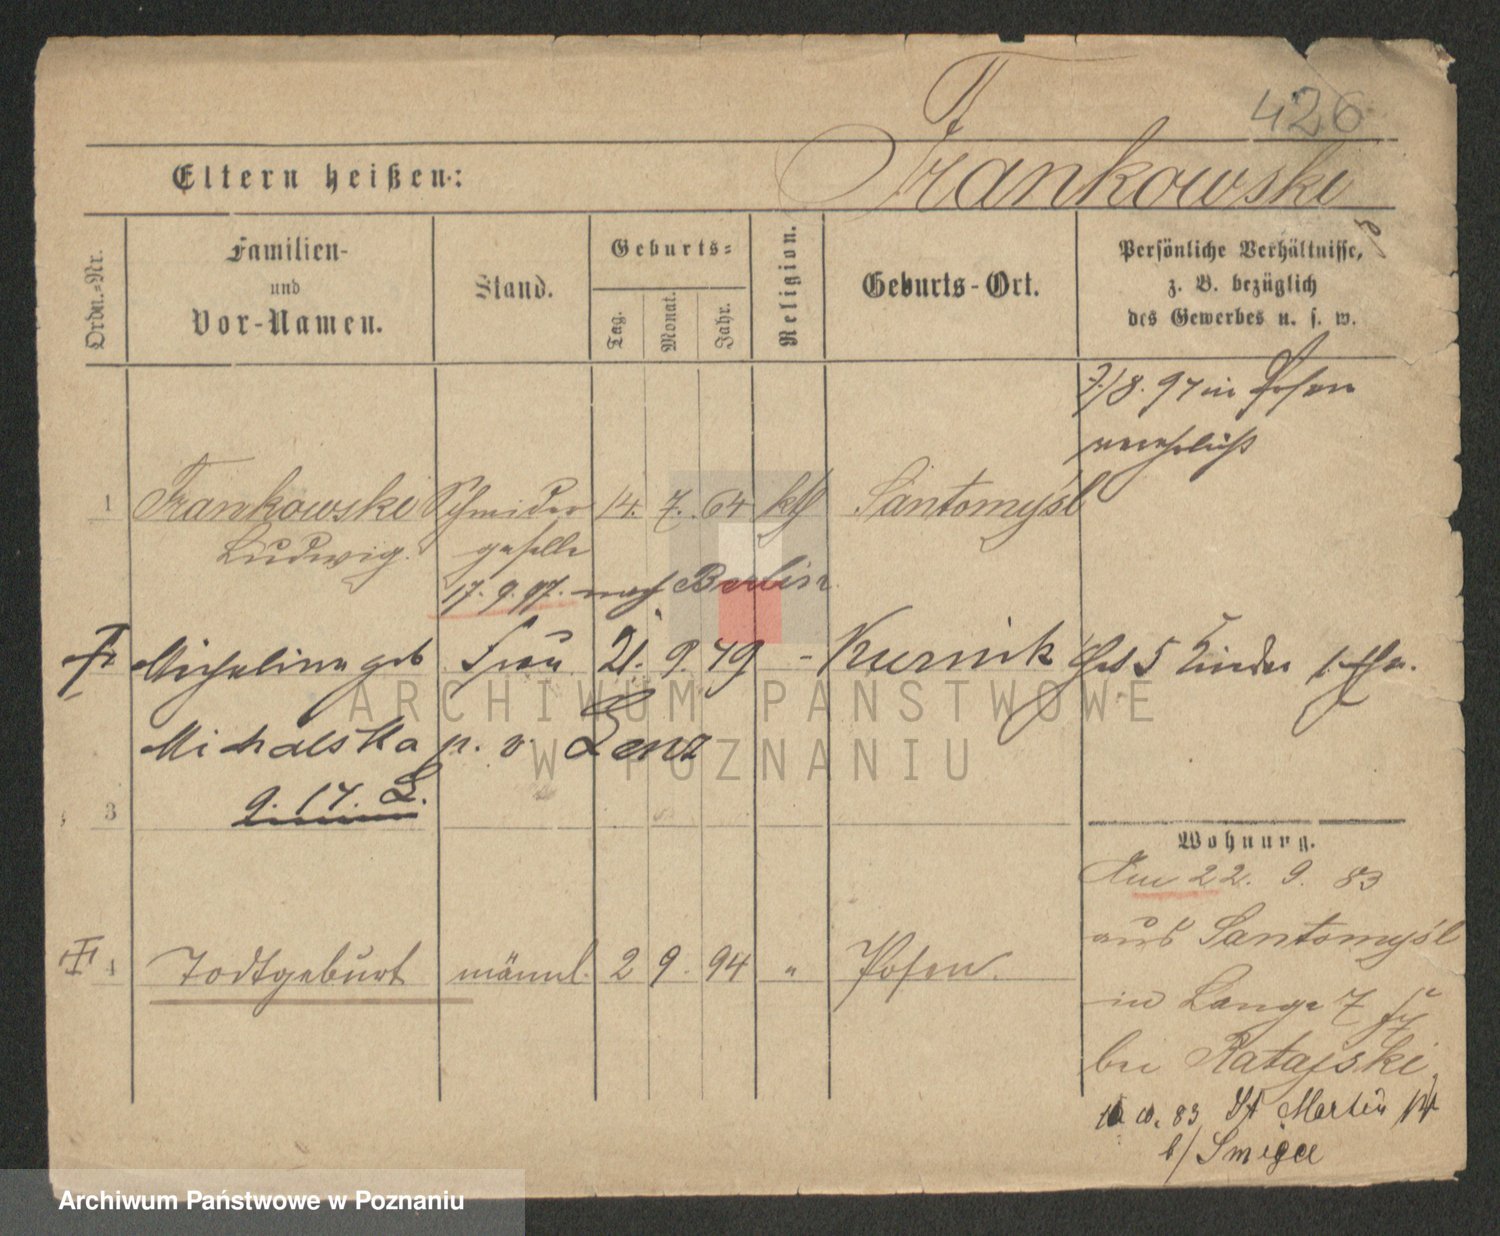 426
Frankowski
Eltern heißen:
Ordn.-Nr.
Familien-
und
Vor-Namen.
Stand.
Geburts-
Tag.
Monat.
Jahr.
Religion.
Geburts-Ort.
Persönliche Verhältnisse,
z. B. bezüglich
des Gewerbes u. s. w.
7/8. 97 in Posen
verehelicht
1 Frankowski Schneider 14. 7. 64 kth Santomysl
Ludwig. geselle
17. 9. 97. nach Berlin
Michalina geb Frau 21. 9. 79 - Kurnik Hat 5 Kinder
Michalska p. v. Lenz
9. 17. L.
3
Wohnung.
Am 22. 9. 83
aus Santomysl
in Lange 7
bei Ratajski
4 Todtgeburt männl. 2 9. 94 " Posen.
83 St Martin
b/ Smigel
ARCHIWUM PAŃSTWOWE
W POZNANIU
Archiwum Państwowe w Poznaniu